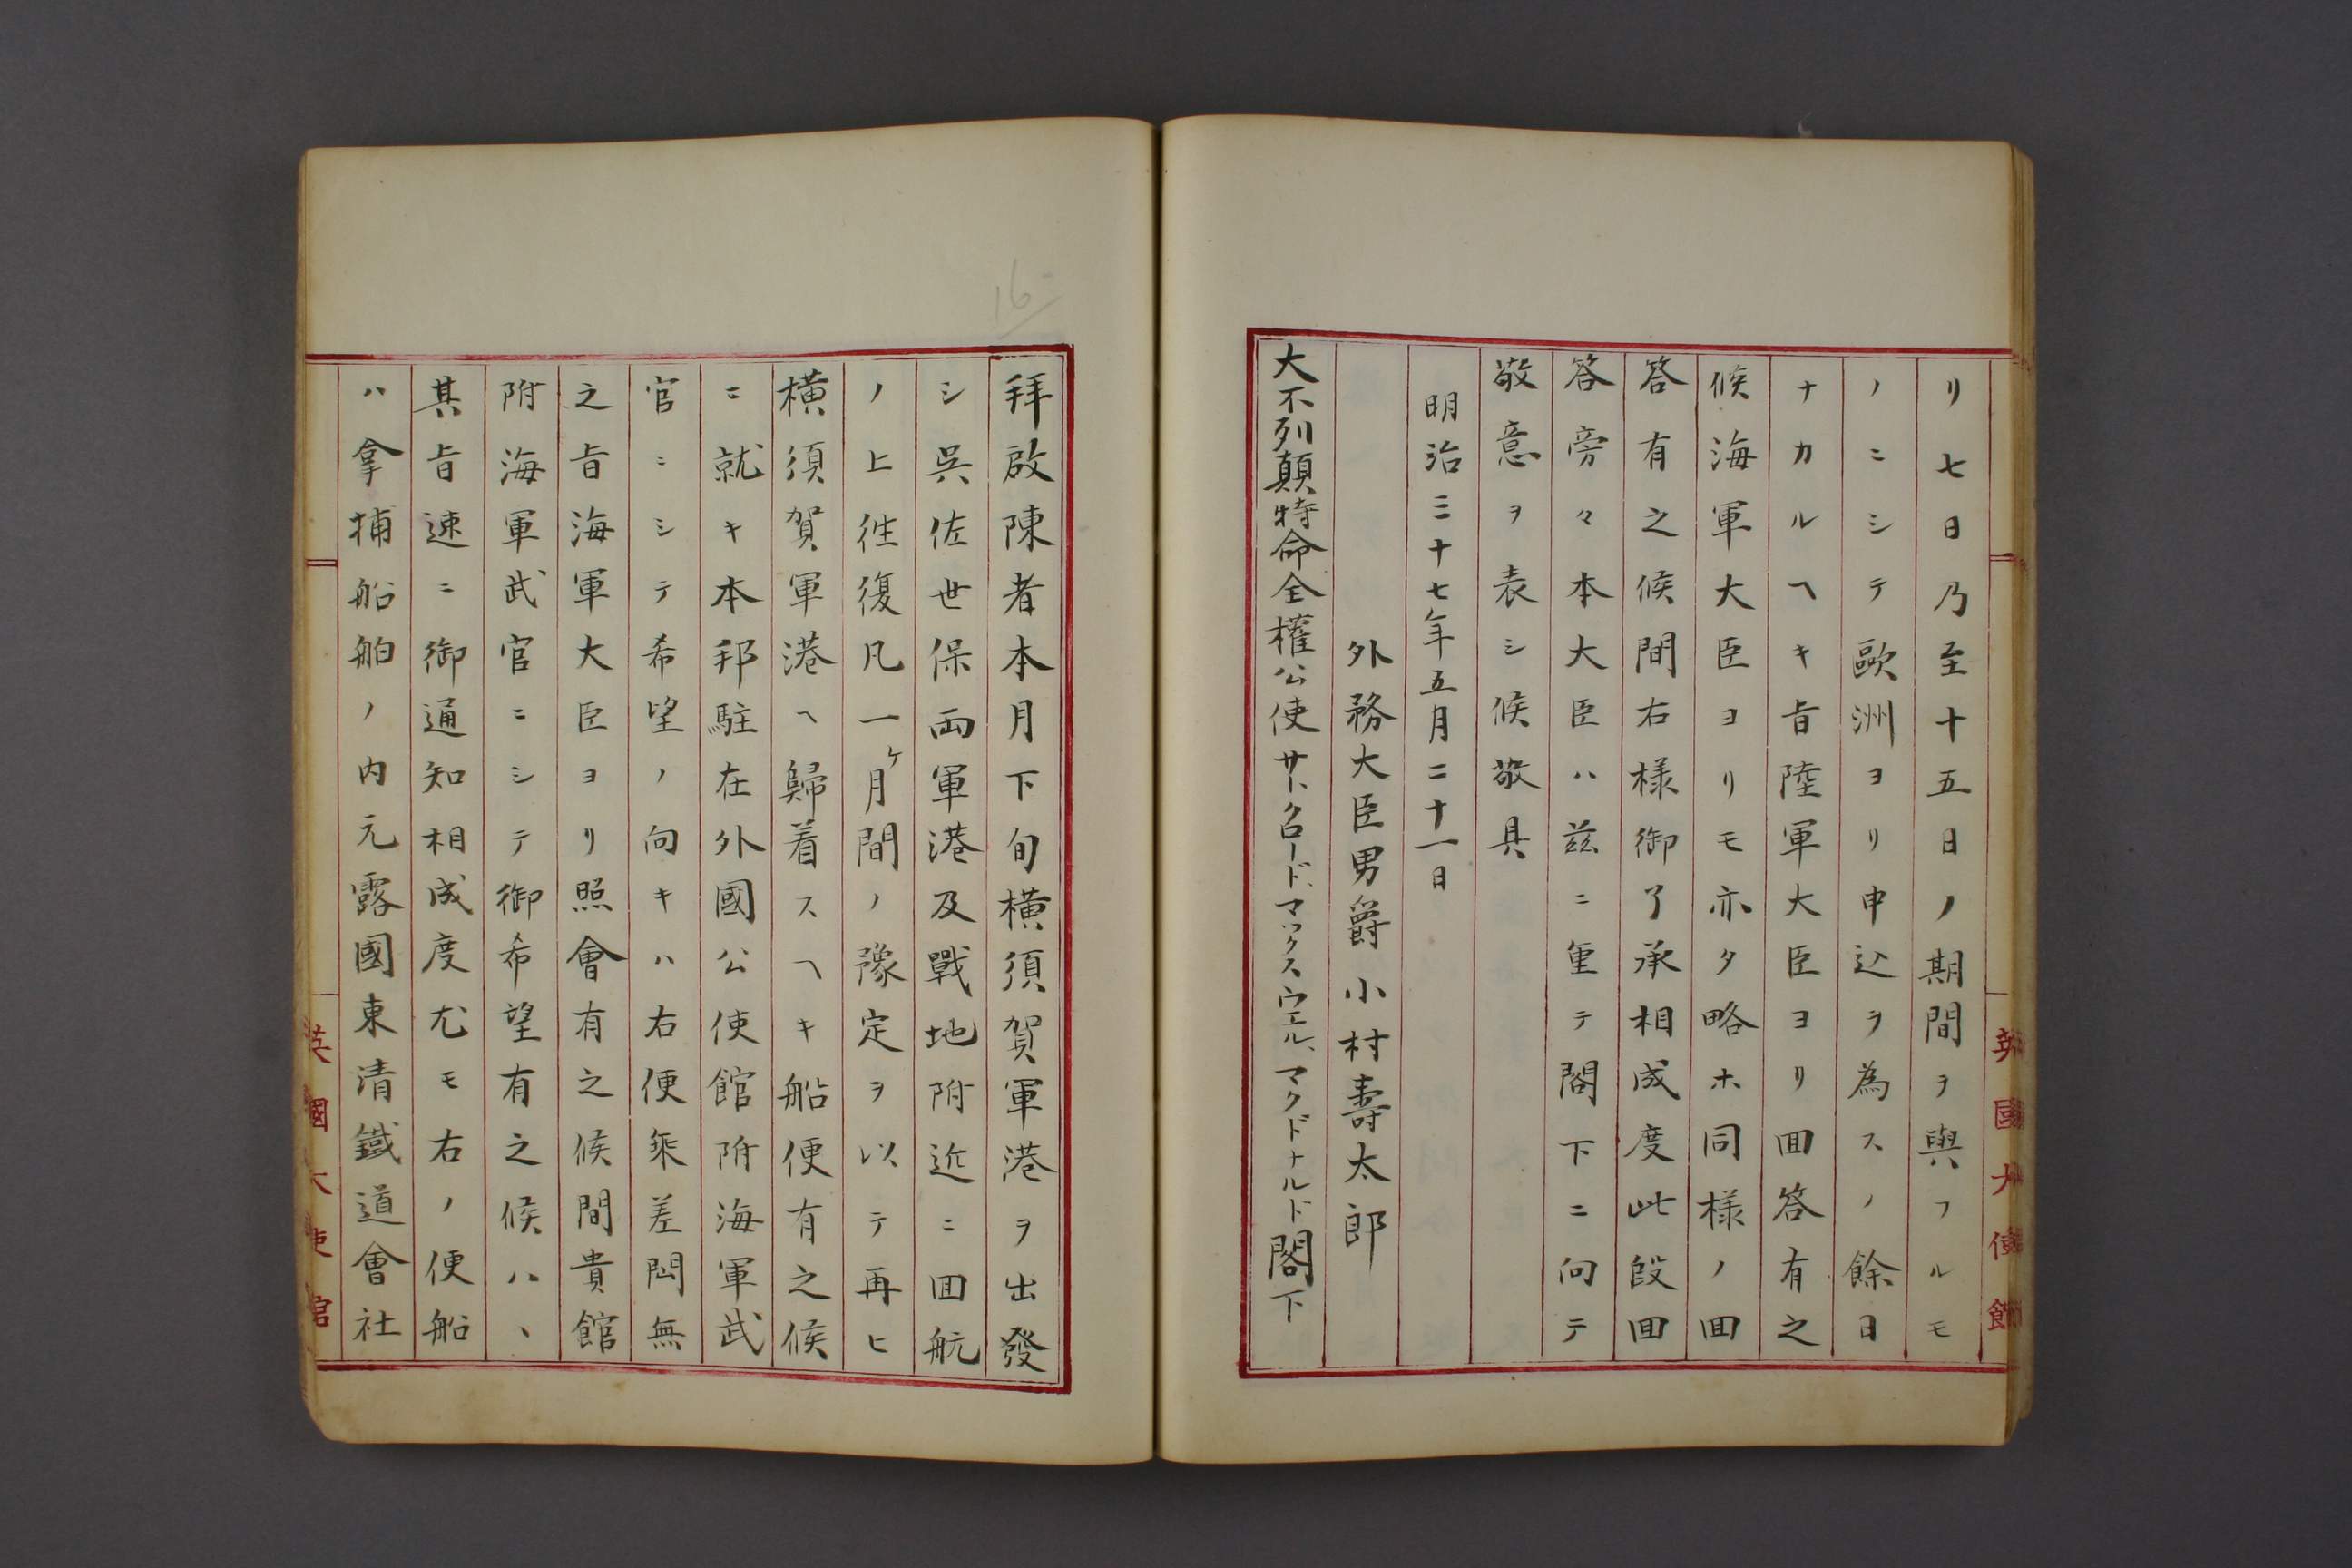 リ七日乃至十五日ノ期間ヲ與フルモ
ノニシテ歐洲ヨリ申込ヲ為スノ餘日
ナカルヘキ旨陸軍大臣ヨリ回答有之
候海軍大臣ヨリモ亦タ略ホ同様ノ回
答有之候間右様御了承相成度此段回
答旁々本大臣ハ茲ニ重テ閣下ニ向テ
敬意ヲ表シ候敬具
明治三十七年五月二十一日
外務大臣男爵小村壽太郎
大不列顛特命全權公使サー、クロード、マックスウエル、マクドナルド閣下
英國大使館
16
拜啟陳者本月下旬横須賀軍港ヲ出發
シ呉佐世保両軍港及戰地附近ニ回航
ノ上往復凡一ケ月間ノ豫定ヲ以テ再ヒ
横須賀軍港ヘ歸着スヘキ船便有之候
ニ就キ本邦駐在外國公使館附海軍武
官ニシテ希望ノ向キハ右便乘差閊無
之旨海軍大臣ヨリ照會有之候間貴館
附海軍武官ニシテ御希望有之候ハヽ
其旨速ニ御通知相成度尤モ右ノ便船
ハ拿捕船舶ノ内元露國東清鐵道會社
英國大使館